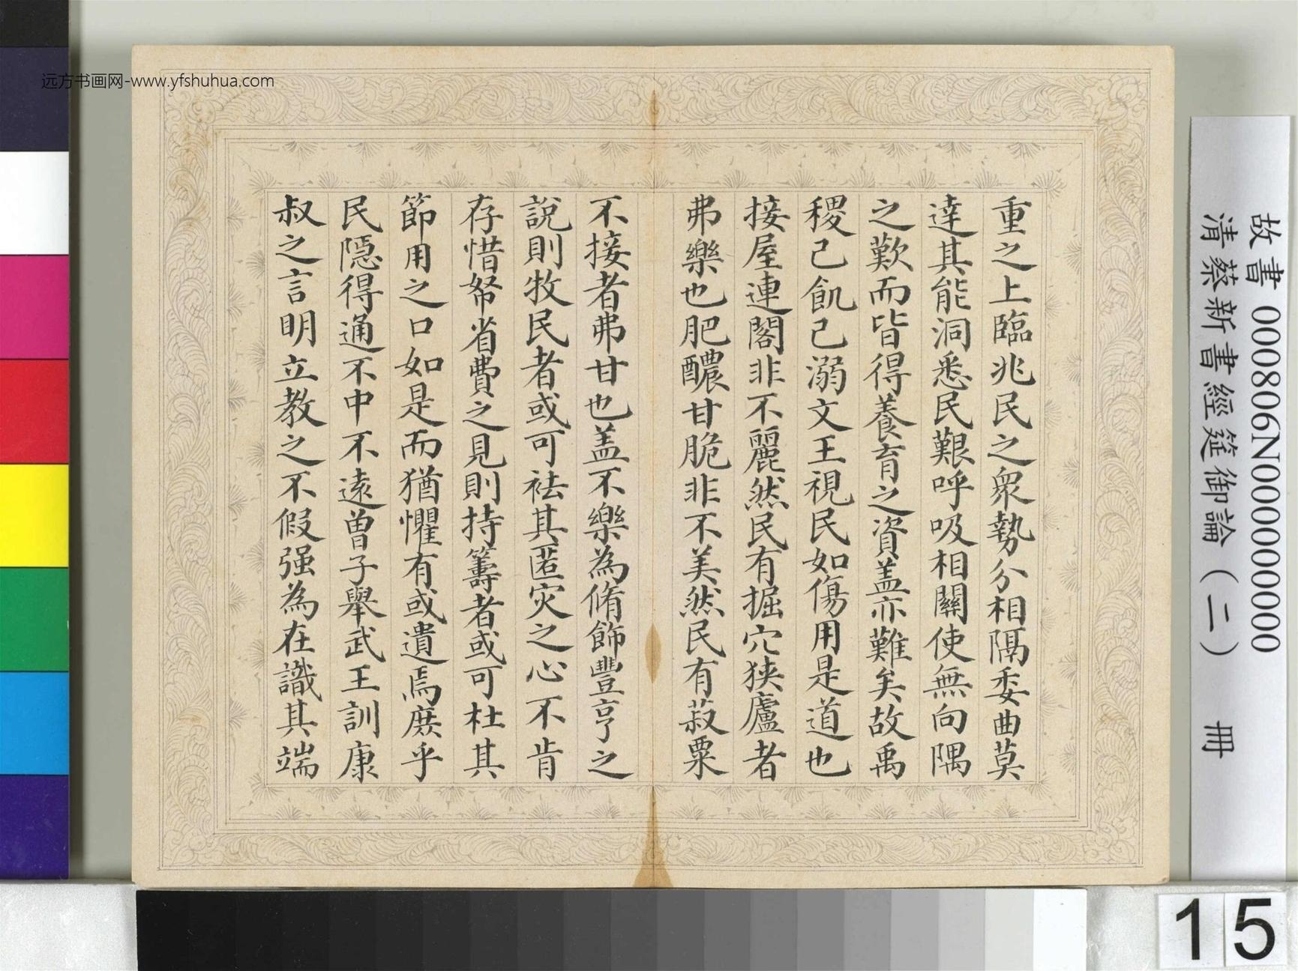 远方书画网-www.yfshuhua.com
重之上臨兆民之眾勢分相隔委曲莫
達其能洞悉民艱呼吸相關使無向隅
之歎而皆得養育之資盖亦難矣故禹
稷己飢己溺文王視民如傷用是道也
接屋連閣非不麗然民有掘穴狹廬者
弗樂也肥醲甘脆非不美然民有菽粟
不接者弗甘也盖不樂為脩飾豐亨之
說則牧民者或可祛其匿灾之心不肯
存惜帑省費之見則持籌者或可杜其
節用之口如是而猶懼有或遺焉庶乎
民隱得通不中不遠曾子舉武王訓康
叔之言明立教之不假强為在識其端
故書 000806N000000000
清蔡新書經筵御論(二) 冊
15